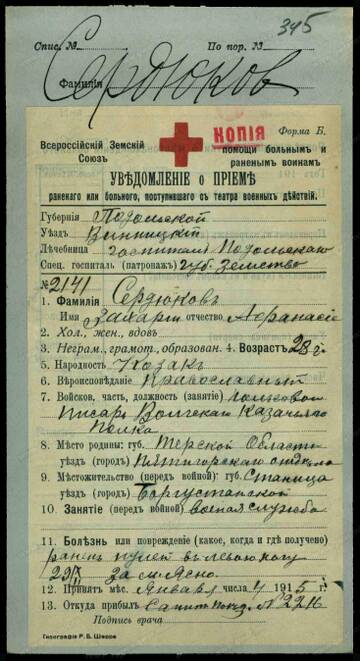 345
Спис. № По пор. №
Фамилія Сердюков
КОПІЯ
Форма Б.
Всероссійскій Земскій Союзъ
помощи больнымъ и раненымъ воинамъ
УВѢДОМЛЕНІЕ о ПРІЕМѢ
раненаго или больного, поступившаго съ театра военныхъ дѣйствій.
Губернія Подольской
Уѣздъ Винницкій
Лѣчебница госпиталь Подольскаго
Спец. госпиталь (патронажъ) Губ. Земства
№ 2141
1. Фамилія Сердюковъ
Имя Захарій отчество
2. Хол., жен., вдов.
3. Неграм., грамот., образован. 4. Возрастъ 28 г.
5. Народность Козакъ
6. Вѣроисповѣданіе Православный
7. Войсков. часть, должность (занятіе) полковой
писарь Волгскаго Казачьяго
полка
8. Мѣсто родины: губ. Терской Области
уѣздъ (городъ) Пятигорскаго отдѣла
9. Мѣстожительство (передъ войной): губ. Станица
уѣздъ (городъ) Боргустанской
10. Занятіе (передъ войной) военая служба
11. Болѣзнь или поврежденіе (какое, когда и гдѣ получено)
раненъ пулей въ левою ногу
12. Принятъ мѣс. Января числа 4 1915 г.
13. Откуда прибылъ Санит. поѣзд. № 2216
Подпись врача
Типографія Р. Б. Шерра